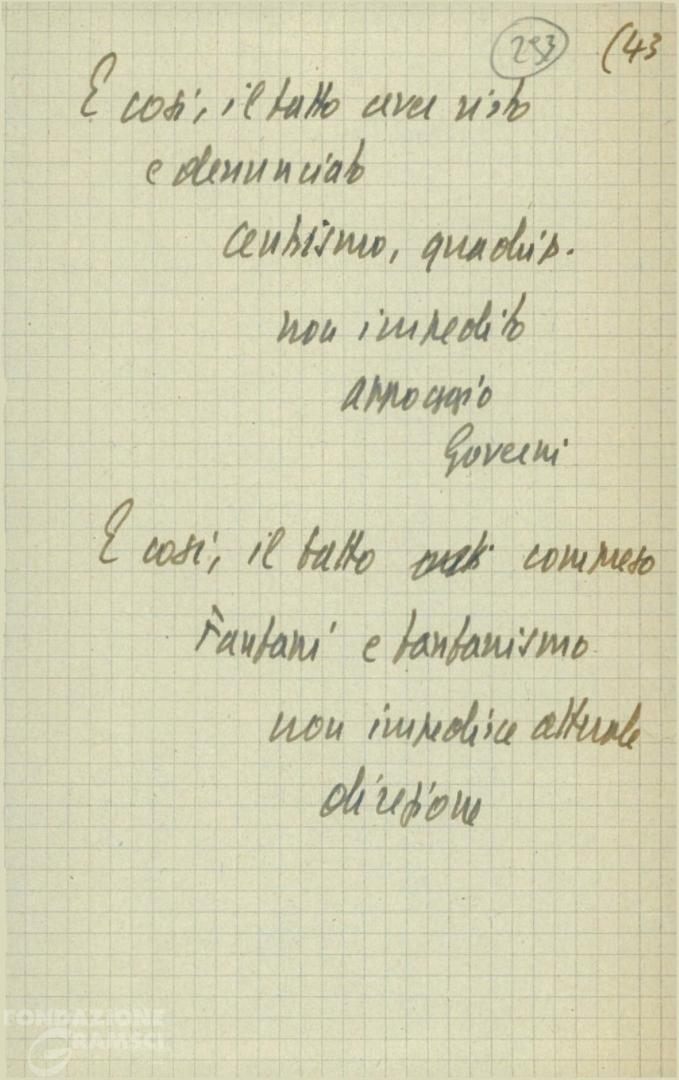 253 (43
E così, il fatto aver visto
e denunciato
centrismo, quadrip.
non impedito
appoggio
Governi
E così, il fatto compreso
Fanfani e fanfanismo
non impedisce attuale
direzione
FONDAZIONE
GRAMSCI